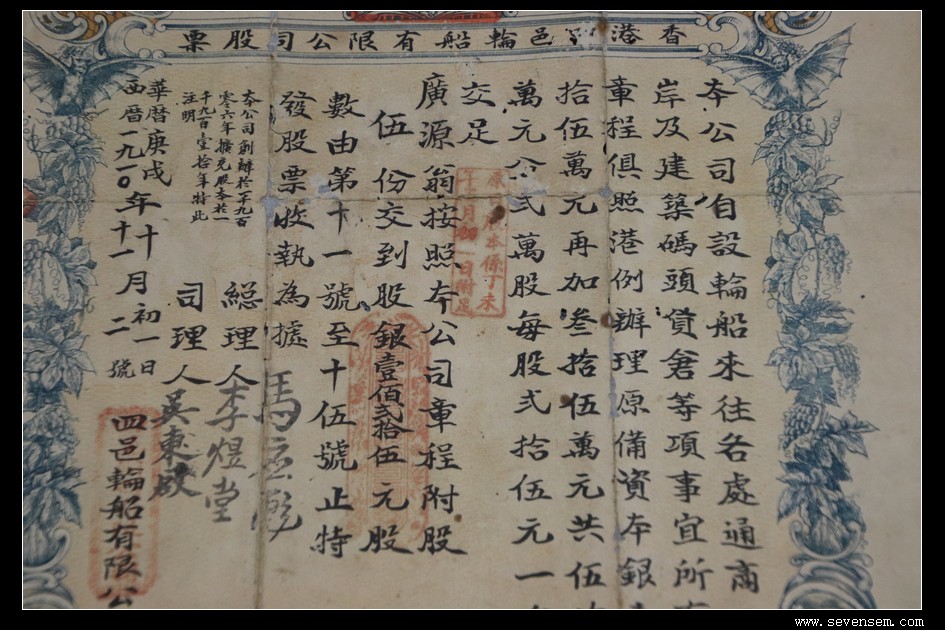 香港四邑輪船有限公司股票
本公司自設輪船來往各處通商
岸及建築碼頭貨倉等項事宜所
章程俱照港例辦理原備資本銀
拾伍萬元再加叁拾伍萬元共伍
萬元分弍萬股每股弍拾伍元一
交足
廣源翁按照本公司章程附股
伍份交到股銀壹佰弍拾伍元股
數由第十一號至十伍號止特
發股票收執為據
總理人李煜堂
司理人吳東啟
本公司創辦於一千九百
零六年擴充股本於一
千九百壹拾年特此
注明
華曆庚戌年十月初一日
西曆一九一〇年十一月二號
四邑輪船有限公
股本係丁未
www.sevensem.com